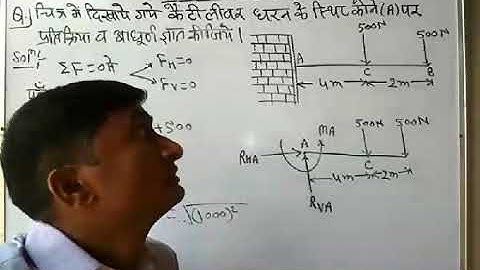 Q:) चित्र में दिखाये गये कैन्टीलीवर धरन के स्थिर कोने (A) पर
प्रतिक्रिया व आघूर्ण ज्ञात कीजिये।
Sol^n:
ΣF=0 से
F_H=0
F_V=0
+500
= √(1000)²
500N 500N
A
C B
4m 2m
500N 500N
M_A
R_HA A
C
4m 2m
R_VA